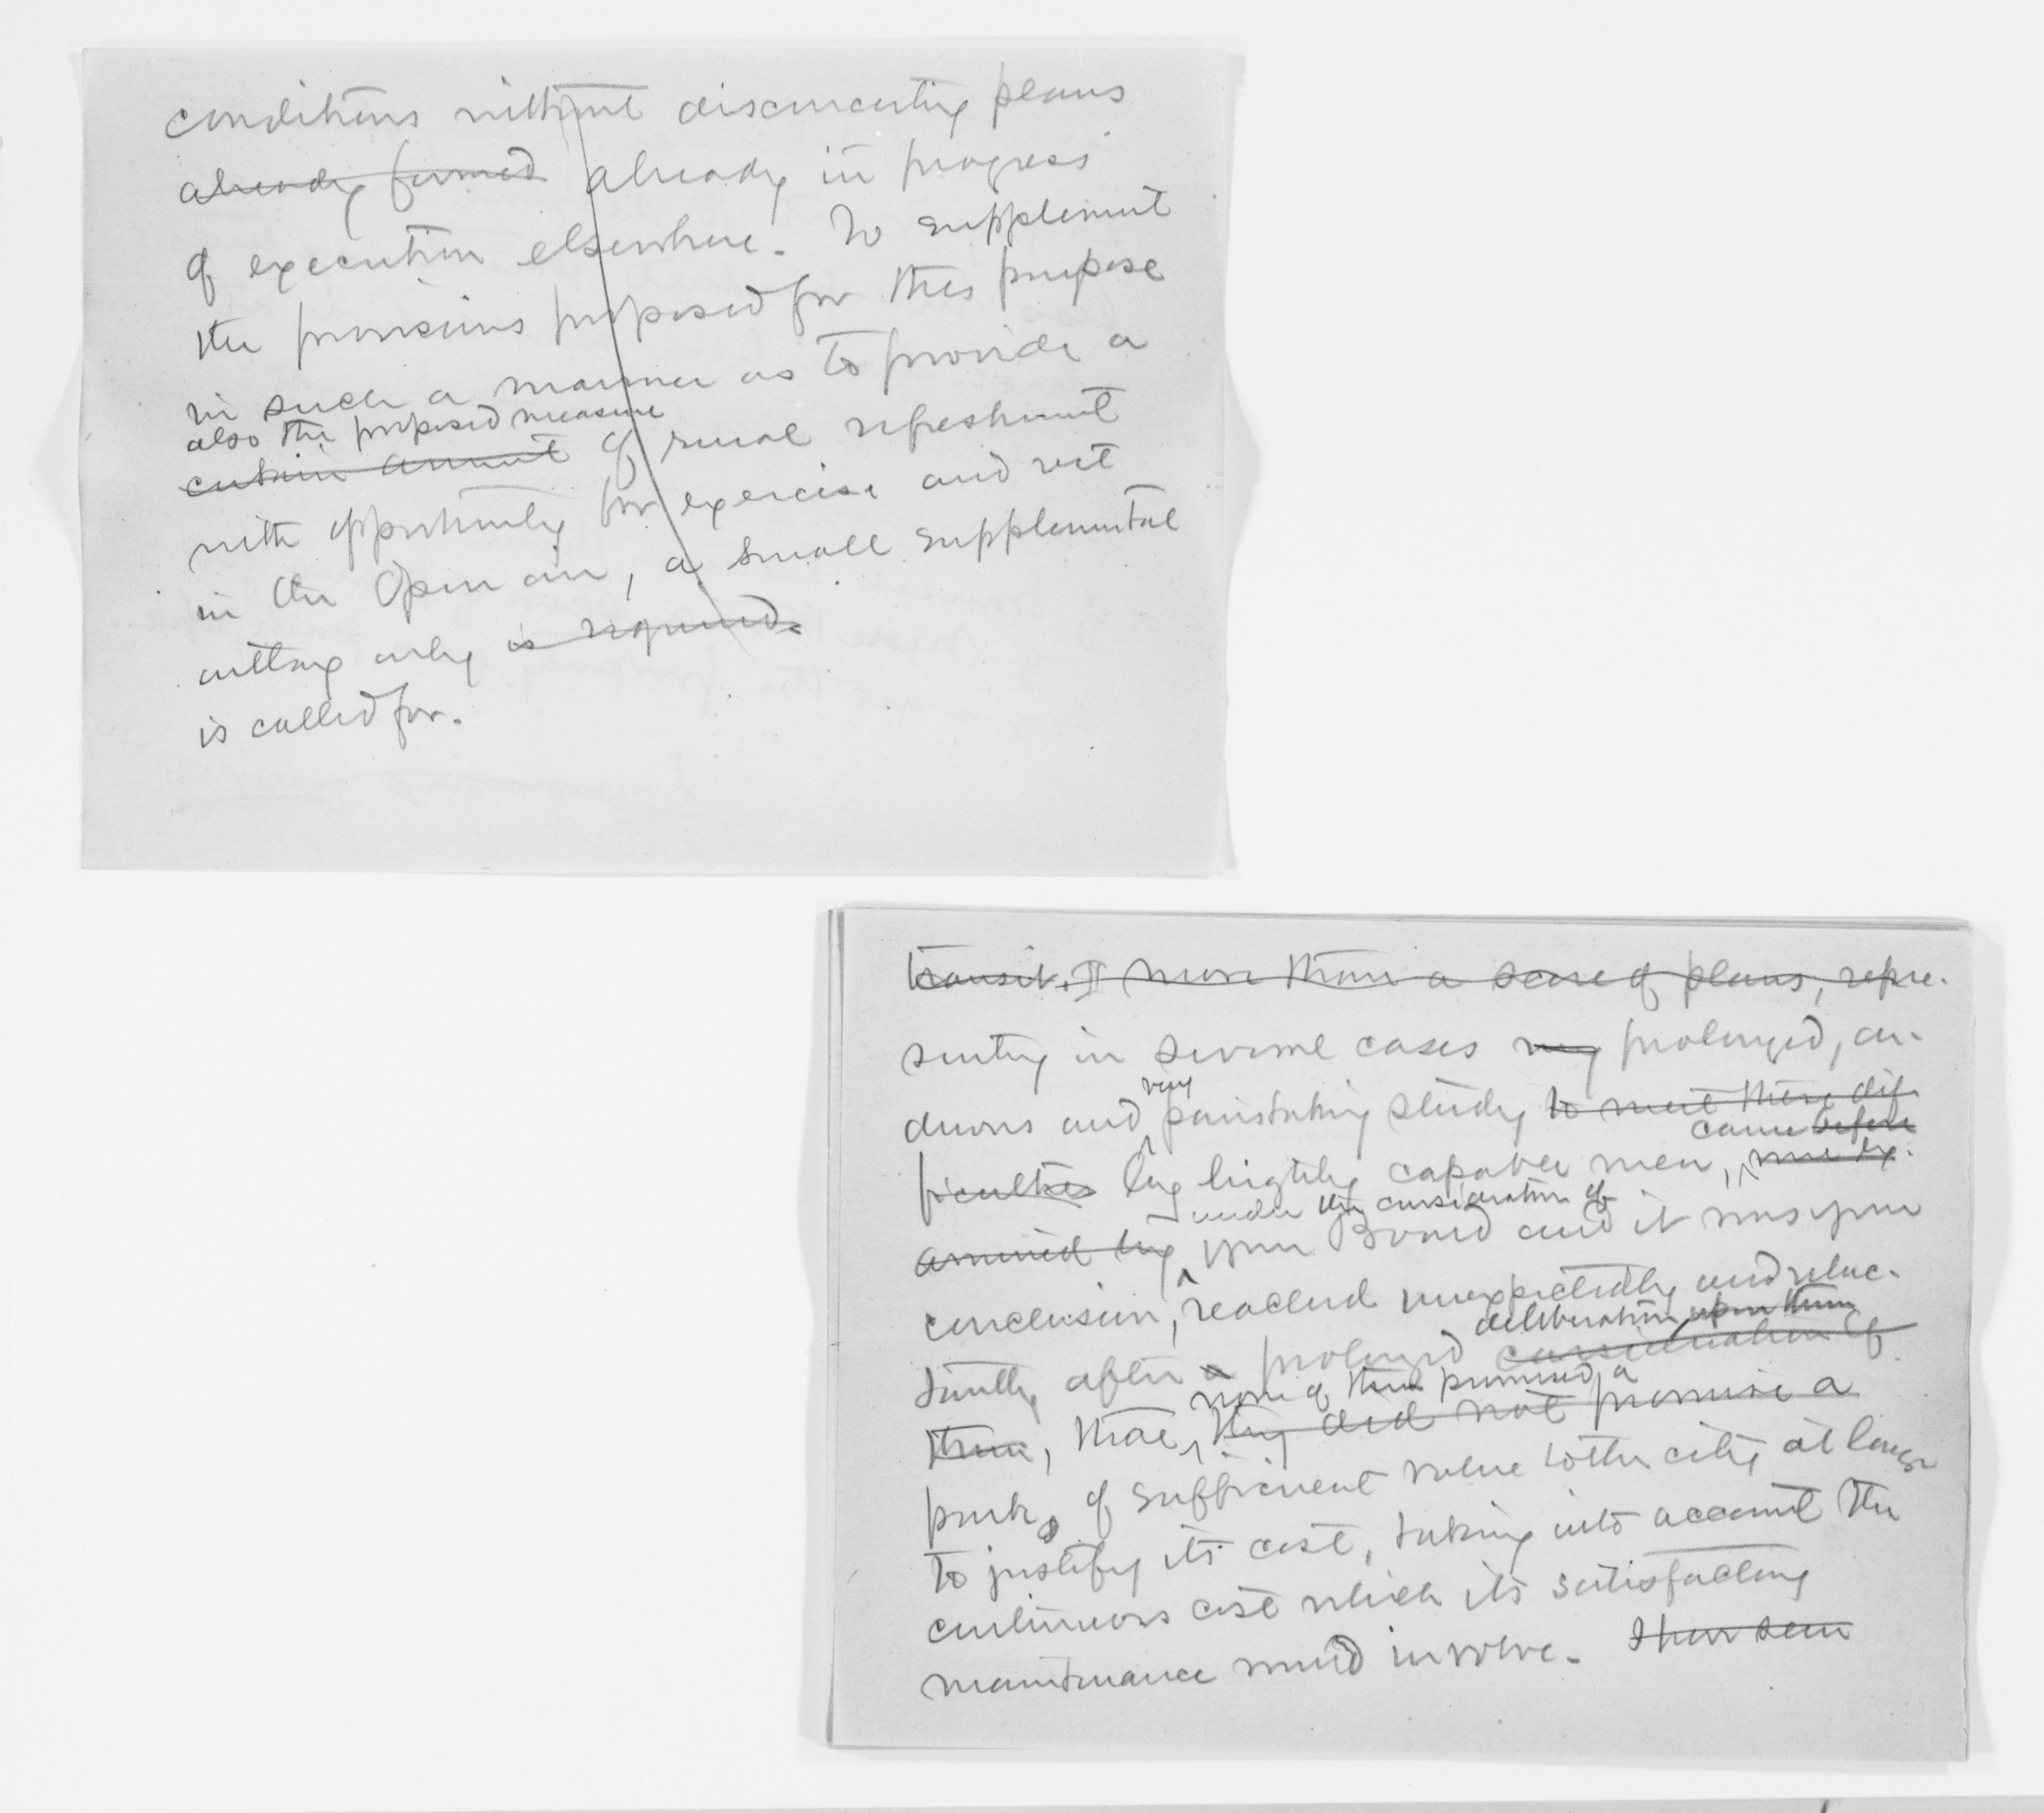 conditions without disconcerting plans
already formed already in progress
of execution elsewhere. To supplement
the provisions proposed for this purpose
in such a manner as to provide a
also the proposed measure
certain amount of rural refreshment
with opportunity for exercise and rest
in the open air, a small supplemental
outlay only is required.
is called for.
transit. II more than a score of plans, repre-
senting in several cases very prolonged, ar-
duous and very painstaking study to meet these dif
came before
ficulties by highly capable men, were ex-
under the consideration of
amined by your Board and it was your
conclusion, reached unexpectedly and reluc-
deliberation upon them
tantly after a prolonged consideration of
none of them promised a
them, that they did not promise a
park, of sufficient value to the city at large
to justify its cost, taking into account the
continuous cost which its satisfactory
maintenance would involve. I have seen